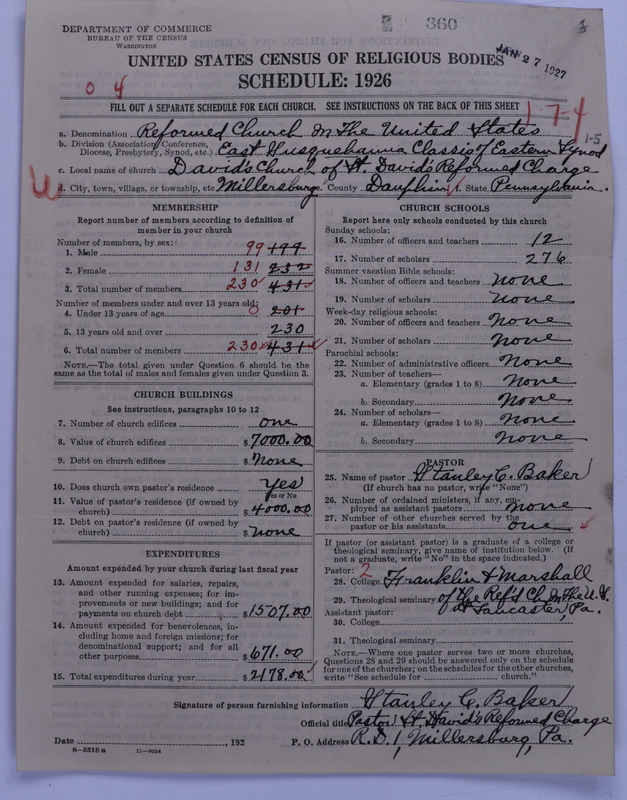 360
DEPARTMENT OF COMMERCE
BUREAU OF THE CENSUS
WASHINGTON
JAN 27 1927
UNITED STATES CENSUS OF RELIGIOUS BODIES
SCHEDULE: 1926
0 4
FILL OUT A SEPARATE SCHEDULE FOR EACH CHURCH. SEE INSTRUCTIONS ON THE BACK OF THIS SHEET
1-7-4
1-5
a. Denomination Reformed Church In The United States
b. Division (Association, Conference, Diocese, Presbytery, Synod, etc.) East Susquehanna Classis of Eastern Synod
c. Local name of church David's Church of St. David's Reformed Charge
d. City, town, village, or township, etc. Millersburg e. County Dauphin f. State Pennsylvania.
MEMBERSHIP
Report number of members according to definition of member in your church
Number of members, by sex:
1. Male 99 199
2. Female 131 232
3. Total number of members 230 431
Number of members under and over 13 years old:
4. Under 13 years of age 0 201
5. 13 years old and over 230
6. Total number of members 230 431
NOTE.—The total given under Question 6 should be the same as the total of males and females given under Question 3.
CHURCH BUILDINGS
See instructions, paragraphs 10 to 12
7. Number of church edifices one
8. Value of church edifices $7000.00
9. Debt on church edifices $None
10. Does church own pastor's residence Yes
Yes or No
11. Value of pastor's residence (if owned by church) $4000.00
12. Debt on pastor's residence (if owned by church) $None
EXPENDITURES
Amount expended by your church during last fiscal year
13. Amount expended for salaries, repairs, and other running expenses; for improvements or new buildings; and for payments on church debt $1507.00
14. Amount expended for benevolences, including home and foreign missions; for denominational support; and for all other purposes $671.00
15. Total expenditures during year $2178.00
CHURCH SCHOOLS
Report here only schools conducted by this church
Sunday schools:
16. Number of officers and teachers 12
17. Number of scholars 276
Summer vacation Bible schools:
18. Number of officers and teachers None
19. Number of scholars None
Week-day religious schools:
20. Number of officers and teachers None
21. Number of scholars None
Parochial schools:
22. Number of administrative officers None
23. Number of teachers—
a. Elementary (grades 1 to 8) None
b. Secondary None
24. Number of scholars—
a. Elementary (grades 1 to 8) None
b. Secondary None
PASTOR
25. Name of pastor Stanley C. Baker
(If church has no pastor, write "None")
26. Number of ordained ministers, if any, employed as assistant pastors none
27. Number of other churches served by the pastor or his assistants one
If pastor (or assistant pastor) is a graduate of a college or theological seminary, give name of institution below. (If not a graduate, write "No" in the space indicated.)
Pastor: 2
28. College Franklin & Marshall
29. Theological seminary of the Ref'd Ch. In the U.S. at Lancaster, Pa.
Assistant pastor:
30. College
31. Theological seminary
NOTE.—Where one pastor serves two or more churches, Questions 28 and 29 should be answered only on the schedule for one of the churches; on the schedules for the other churches, write "See schedule for church."
Signature of person furnishing information Stanley C. Baker
Official title Pastor St. David's Reformed Charge
Date , 192
P. O. Address R.D.1, Millersburg, Pa.
8—5518 a 11—9054